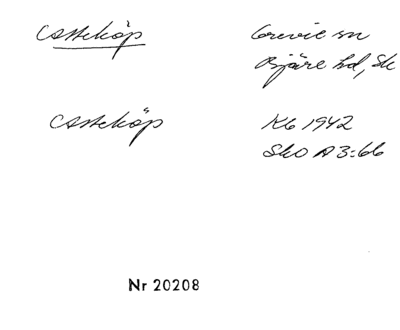 Astteköp
Grevie sn
Bjäre hd, Sk
Astteköp
K6 1942
Sko A3:66
Nr 20208